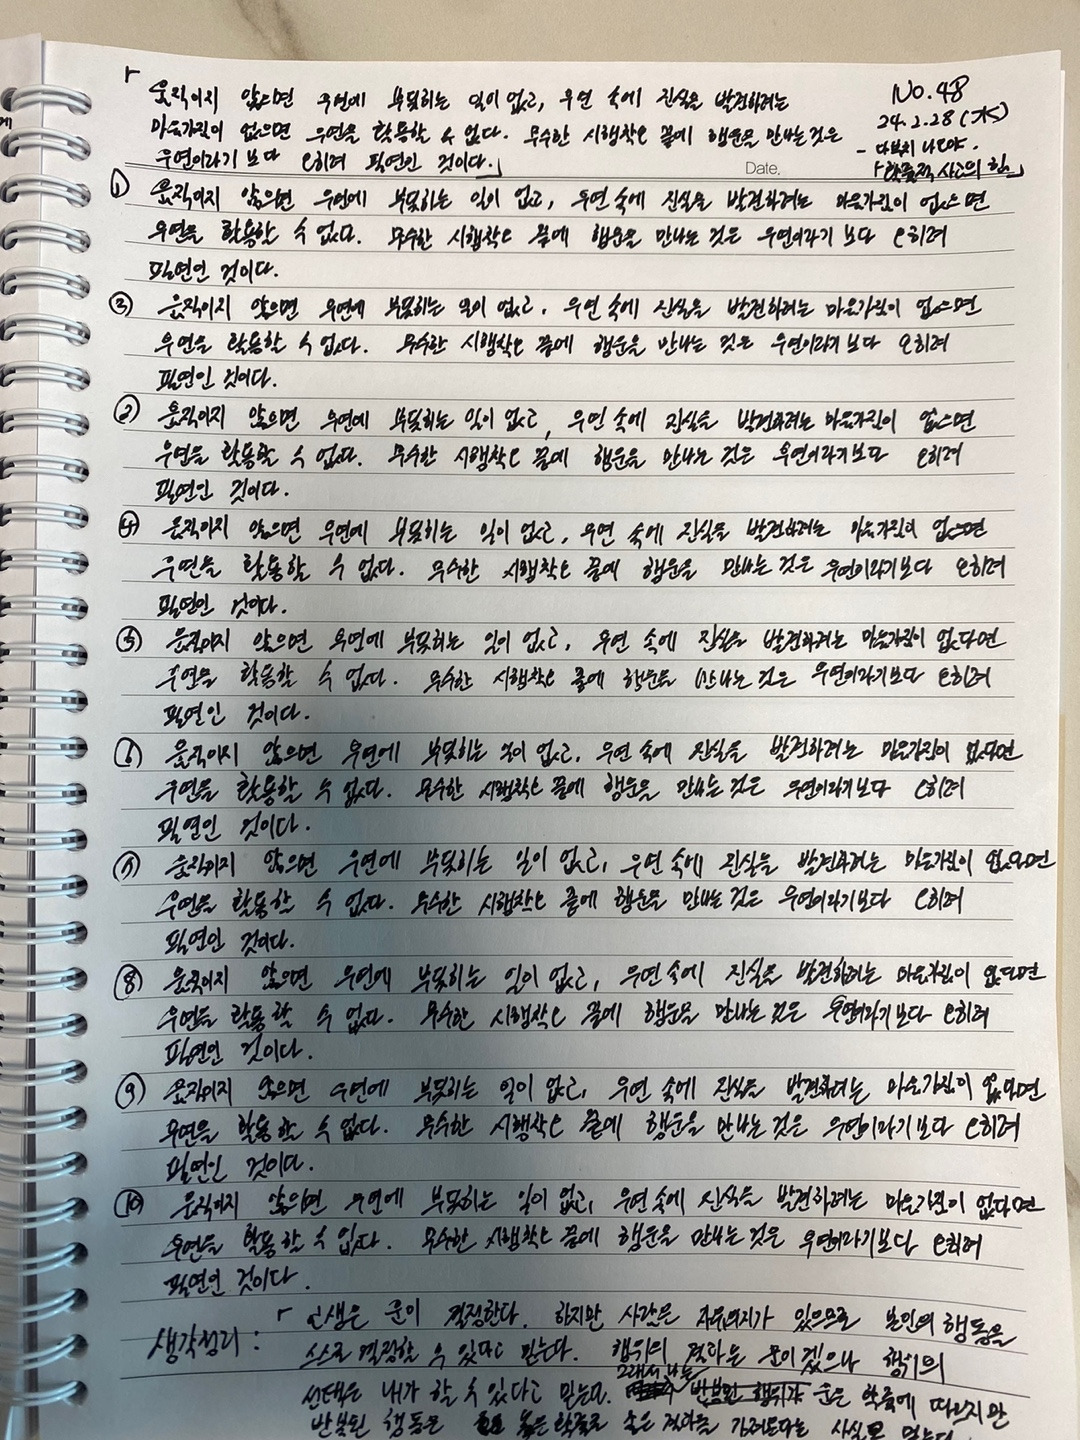 「움직이지 않으면 우연에 부딪히는 일이 없고, 우연 속에 진실을 발견하려는
No.48
마음가짐이 없으면 우연을 활용할 수 없다. 무수한 시행착오 끝에 행운을 만나는 것은
24.2.28(水)
우연이라기 보다 오히려 필연인 것이다.」
- 다부치 나오야.
Date.
「확률적 사고의 힘」
① 움직이지 않으면 우연에 부딪히는 일이 없고, 우연 속에 진실을 발견하려는 마음가짐이 없으면
우연을 활용할 수 없다. 무수한 시행착오 끝에 행운을 만나는 것은 우연이라기 보다 오히려
필연인 것이다.
② 움직이지 않으면 우연에 부딪히는 일이 없고, 우연 속에 진실을 발견하려는 마음가짐이 없으면
우연을 활용할 수 없다. 무수한 시행착오 끝에 행운을 만나는 것은 우연이라기 보다 오히려
필연인 것이다.
움직이지 않으면 우연에 부딪히는 일이 없고, 우연 속에 진실을 발견하려는 마음가짐이 없으면
우연을 활용할 수 없다. 무수한 시행착오 끝에 행운을 만나는 것은 우연이라기 보다 오히려
필연인 것이다.
④ 움직이지 않으면 우연에 부딪히는 일이 없고, 우연 속에 진실을 발견하려는 마음가짐이 없으면
우연을 활용할 수 없다. 무수한 시행착오 끝에 행운을 만나는 것은 우연이라기 보다 오히려
필연인 것이다.
⑤ 움직이지 않으면 우연에 부딪히는 일이 없고, 우연 속에 진실을 발견하려는 마음가짐이 없다면
우연을 활용할 수 없다. 무수한 시행착오 끝에 행운을 만나는 것은 우연이라기 보다 오히려
필연인 것이다.
⑥ 움직이지 않으면 우연에 부딪히는 일이 없고, 우연 속에 진실을 발견하려는 마음가짐이 없다면
우연을 활용할 수 없다. 무수한 시행착오 끝에 행운을 만나는 것은 우연이라기 보다 오히려
필연인 것이다.
⑦ 움직이지 않으면 우연에 부딪히는 일이 없고, 우연 속에 진실을 발견하려는 마음가짐이 없다면
우연을 활용할 수 없다. 무수한 시행착오 끝에 행운을 만나는 것은 우연이라기 보다 오히려
필연인 것이다.
⑧ 움직이지 않으면 우연에 부딪히는 일이 없고, 우연 속에 진실을 발견하려는 마음가짐이 없다면
우연을 활용할 수 없다. 무수한 시행착오 끝에 행운을 만나는 것은 우연이라기 보다 오히려
필연인 것이다.
⑨ 움직이지 않으면 우연에 부딪히는 일이 없고, 우연 속에 진실을 발견하려는 마음가짐이 없다면
우연을 활용할 수 없다. 무수한 시행착오 끝에 행운을 만나는 것은 우연이라기 보다 오히려
필연인 것이다.
⑩ 움직이지 않으면 우연에 부딪히는 일이 없고, 우연 속에 진실을 발견하려는 마음가짐이 없다면
우연을 활용할 수 없다. 무수한 시행착오 끝에 행운을 만나는 것은 우연이라기 보다 오히려
필연인 것이다.
생각정리 : 「인생은 운이 결정한다. 하지만 사람은 자유의지가 있으므로 본인의 행동을
스스로 결정할 수 있다고 믿는다. 행위의 결과는 운이겠으나 행위의
그래서 나는
선택은 내가 할 수 있다고 믿는다. 반복된 행위가 운은 확률에 따라지만
반복된 행동은 높은 확률로 좋은 결과를 가져온다는 사실을 믿는다